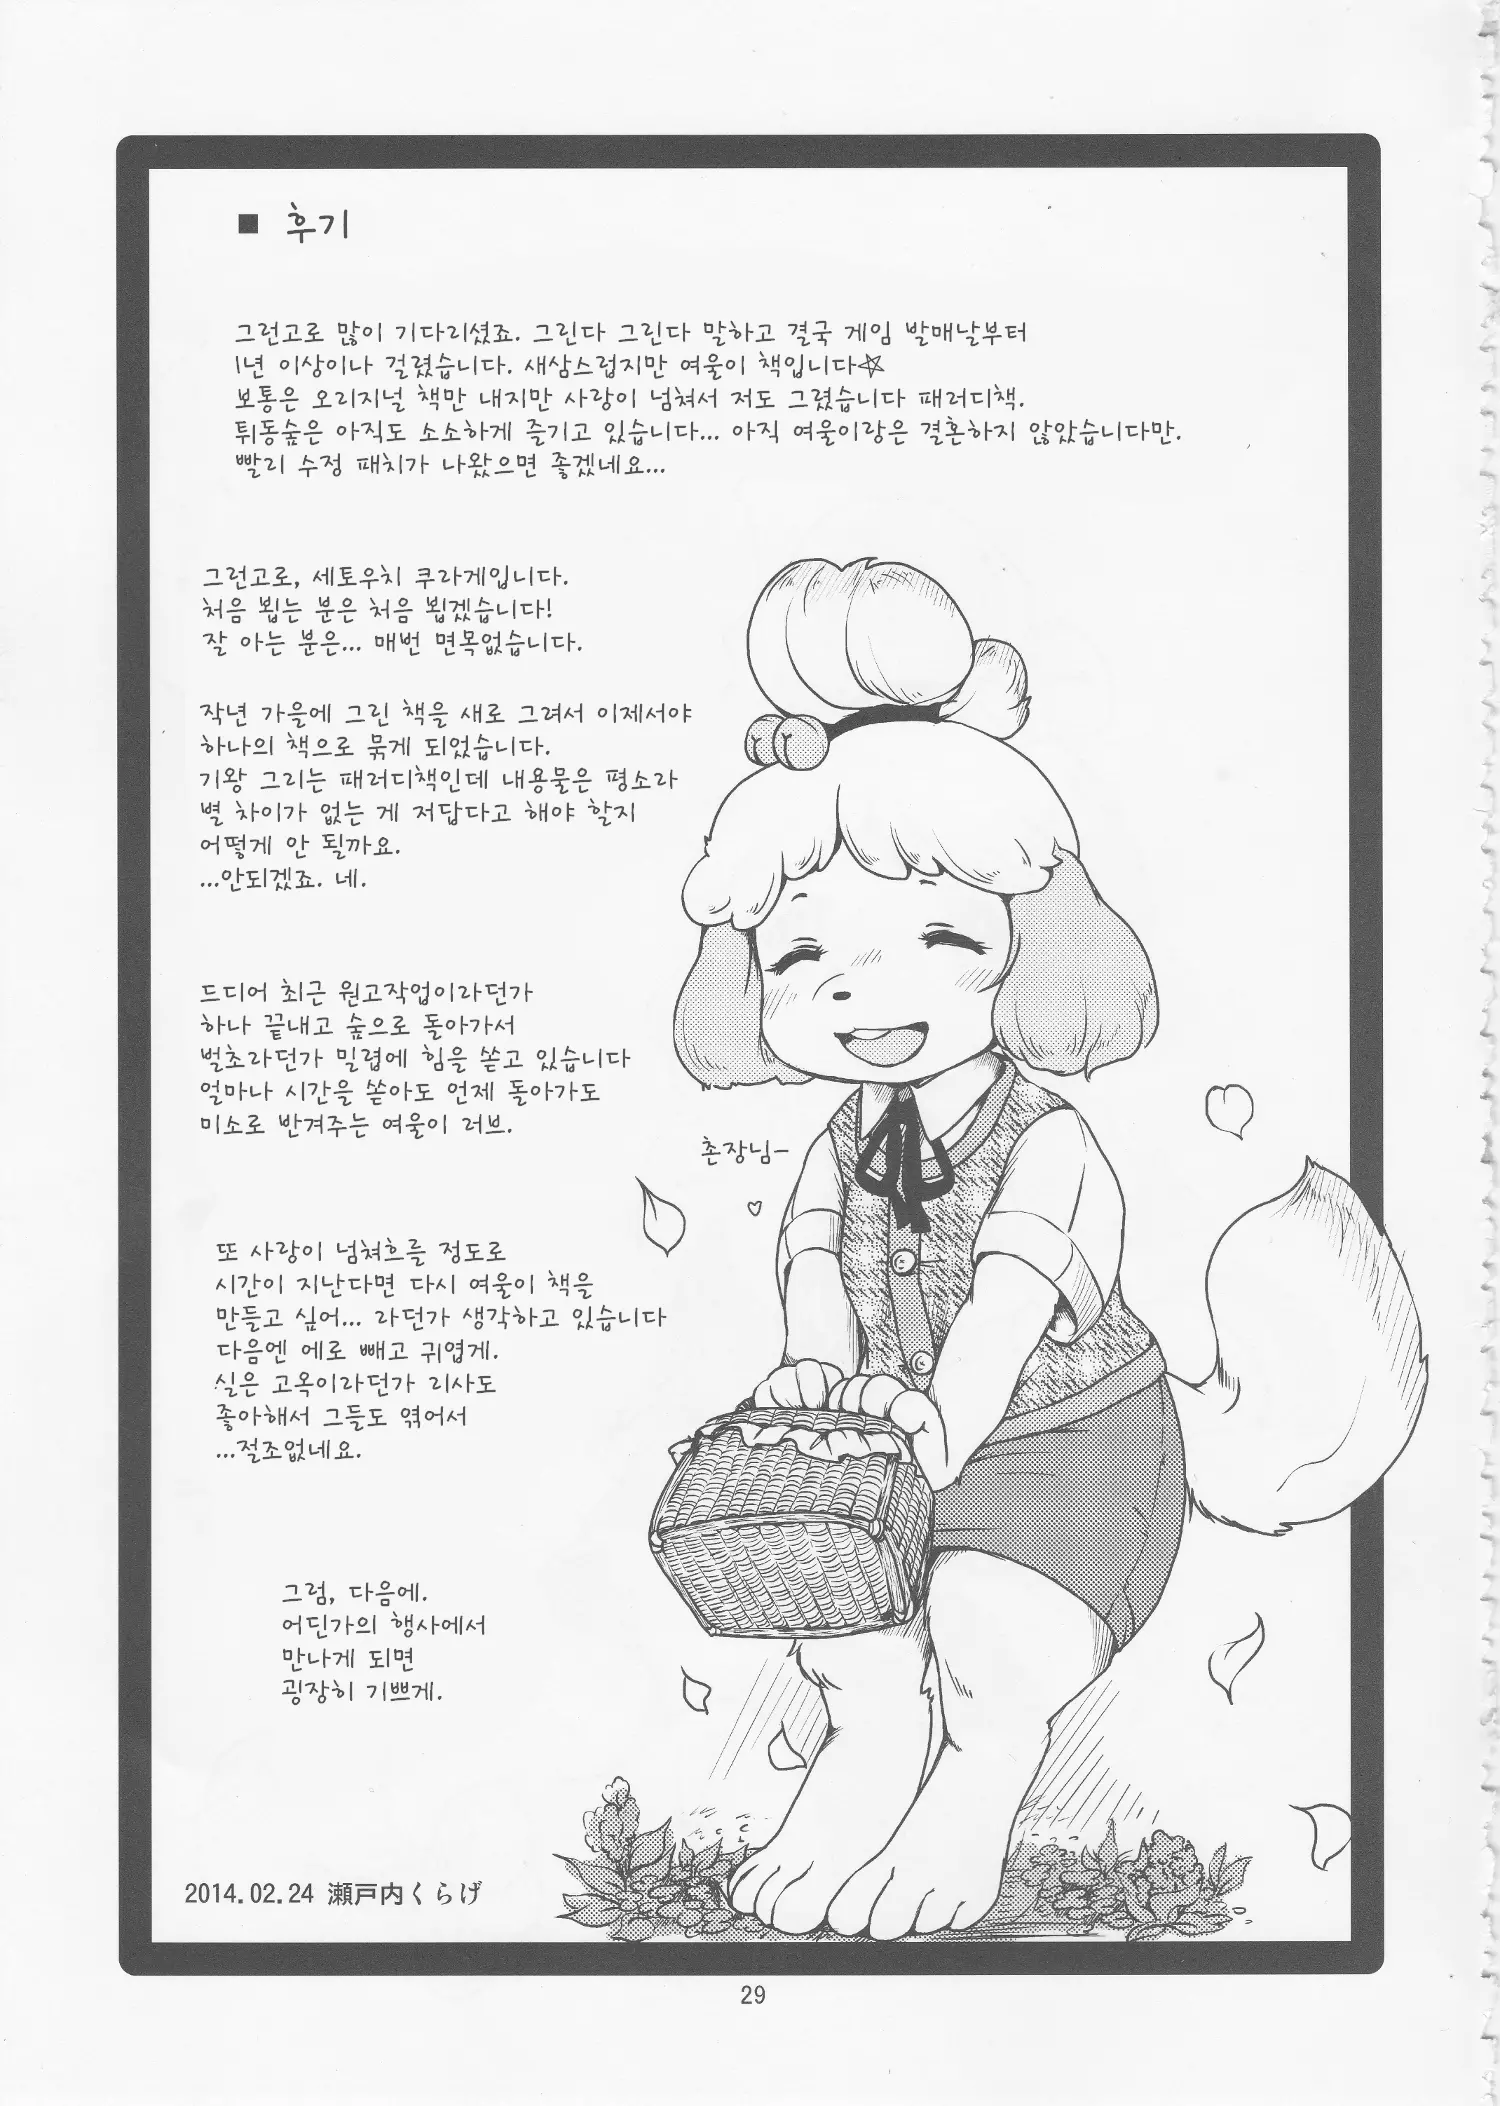 ■ 후기
그런고로 많이 기다리셨죠. 그린다 그린다 말하고 결국 게임 발매날부터
1년 이상이나 걸렸습니다. 새삼스럽지만 여울이 책입니다☆
보통은 오리지널 책만 내지만 사랑이 넘쳐서 저도 그렸습니다 패러디책.
튀동숲은 아직도 소소하게 즐기고 있습니다... 아직 여울이랑은 결혼하지 않았습니다만.
빨리 수정 패치가 나왔으면 좋겠네요...
그런고로, 세토우치 쿠라게입니다.
처음 뵙는 분은 처음 뵙겠습니다!
잘 아는 분은... 매번 면목없습니다.
작년 가을에 그린 책을 새로 그려서 이제서야
하나의 책으로 묶게 되었습니다.
기왕 그리는 패러디책인데 내용물은 평소라
별 차이가 없는 게 저답다고 해야 할지
어떻게 안 될까요.
...안되겠죠. 네.
드디어 최근 원고작업이라던가
하나 끝내고 숲으로 돌아가서
벌초라던가 밀렵에 힘을 쏟고 있습니다
얼마나 시간을 쏟아도 언제 돌아가도
미소로 반겨주는 여울이 러브.
촌장님~
♡
또 사랑이 넘쳐흐를 정도로
시간이 지난다면 다시 여울이 책을
만들고 싶어... 라던가 생각하고 있습니다
다음엔 에로 빼고 귀엽게.
실은 고옥이라던가 리사도
좋아해서 그들도 엮어서
...절조없네요.
그럼, 다음에.
어딘가의 행사에서
만나게 되면
굉장히 기쁘게.
2014.02.24 瀬戸内くらげ
29